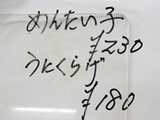 めんたい子
¥230
うにくらげ
¥180